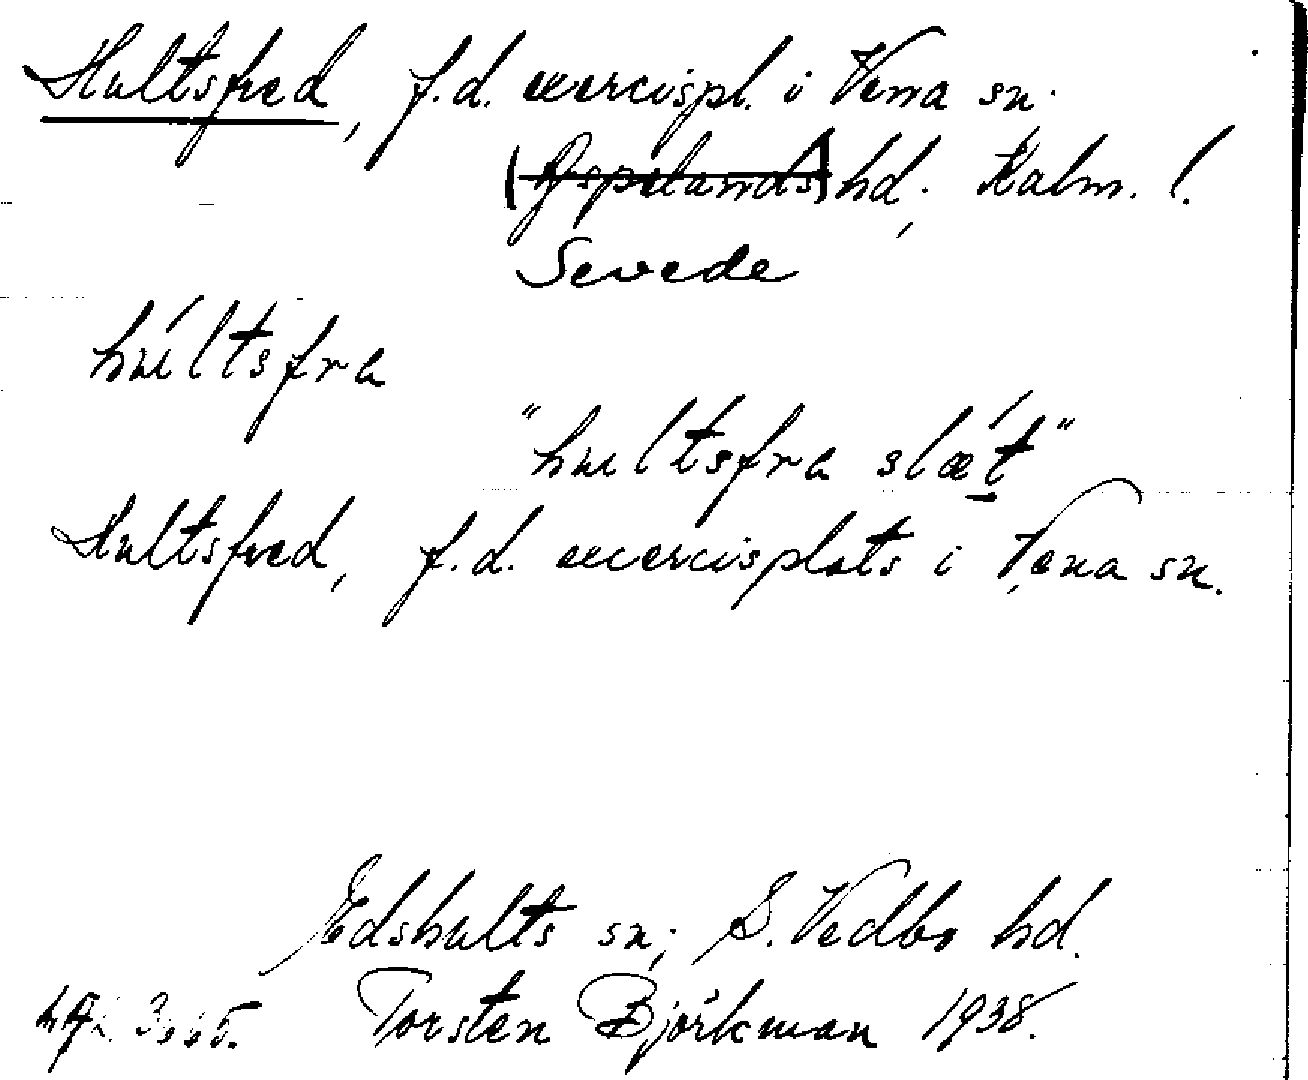 Hultsfred, f.d. exercispl. i Vena sn.
(Aspelands) hd, Kalm. l.
Sevede
húltsfra
"hultsfra slǽt"
Hultsfred, f.d. exercisplats i Vena sn.
Edshults sn; S. Vedbo hd.
Torsten Björkman 1938.